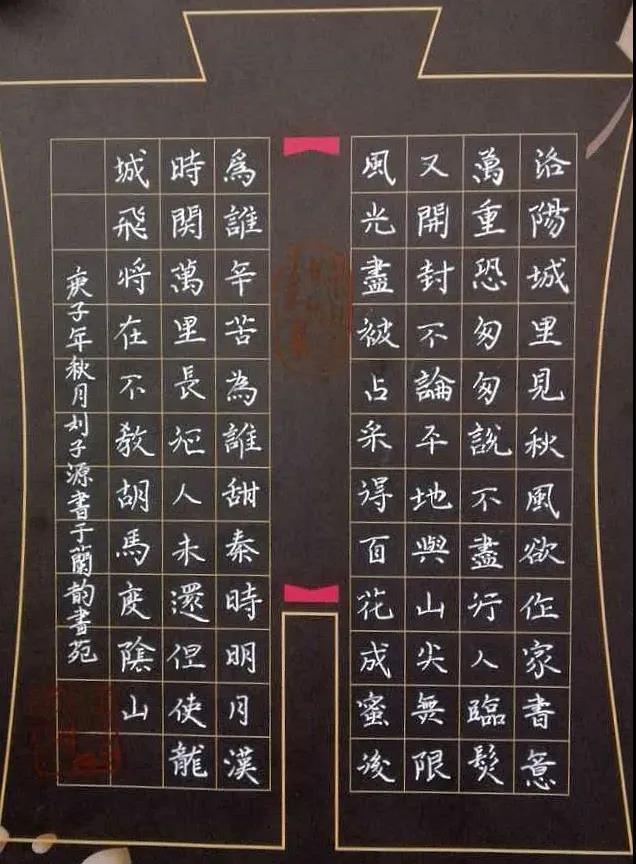 洛陽城里見秋風欲作家書意
萬重恐匆匆説不盡行人臨髮
又開封不論平地與山尖無限
風光盡被占采得百花成蜜後
爲誰辛苦為誰甜秦時明月漢
時関萬里長征人未還但使龍
城飛将在不教胡馬度陰山
庚子年秋月刘子源書于蘭韵書苑